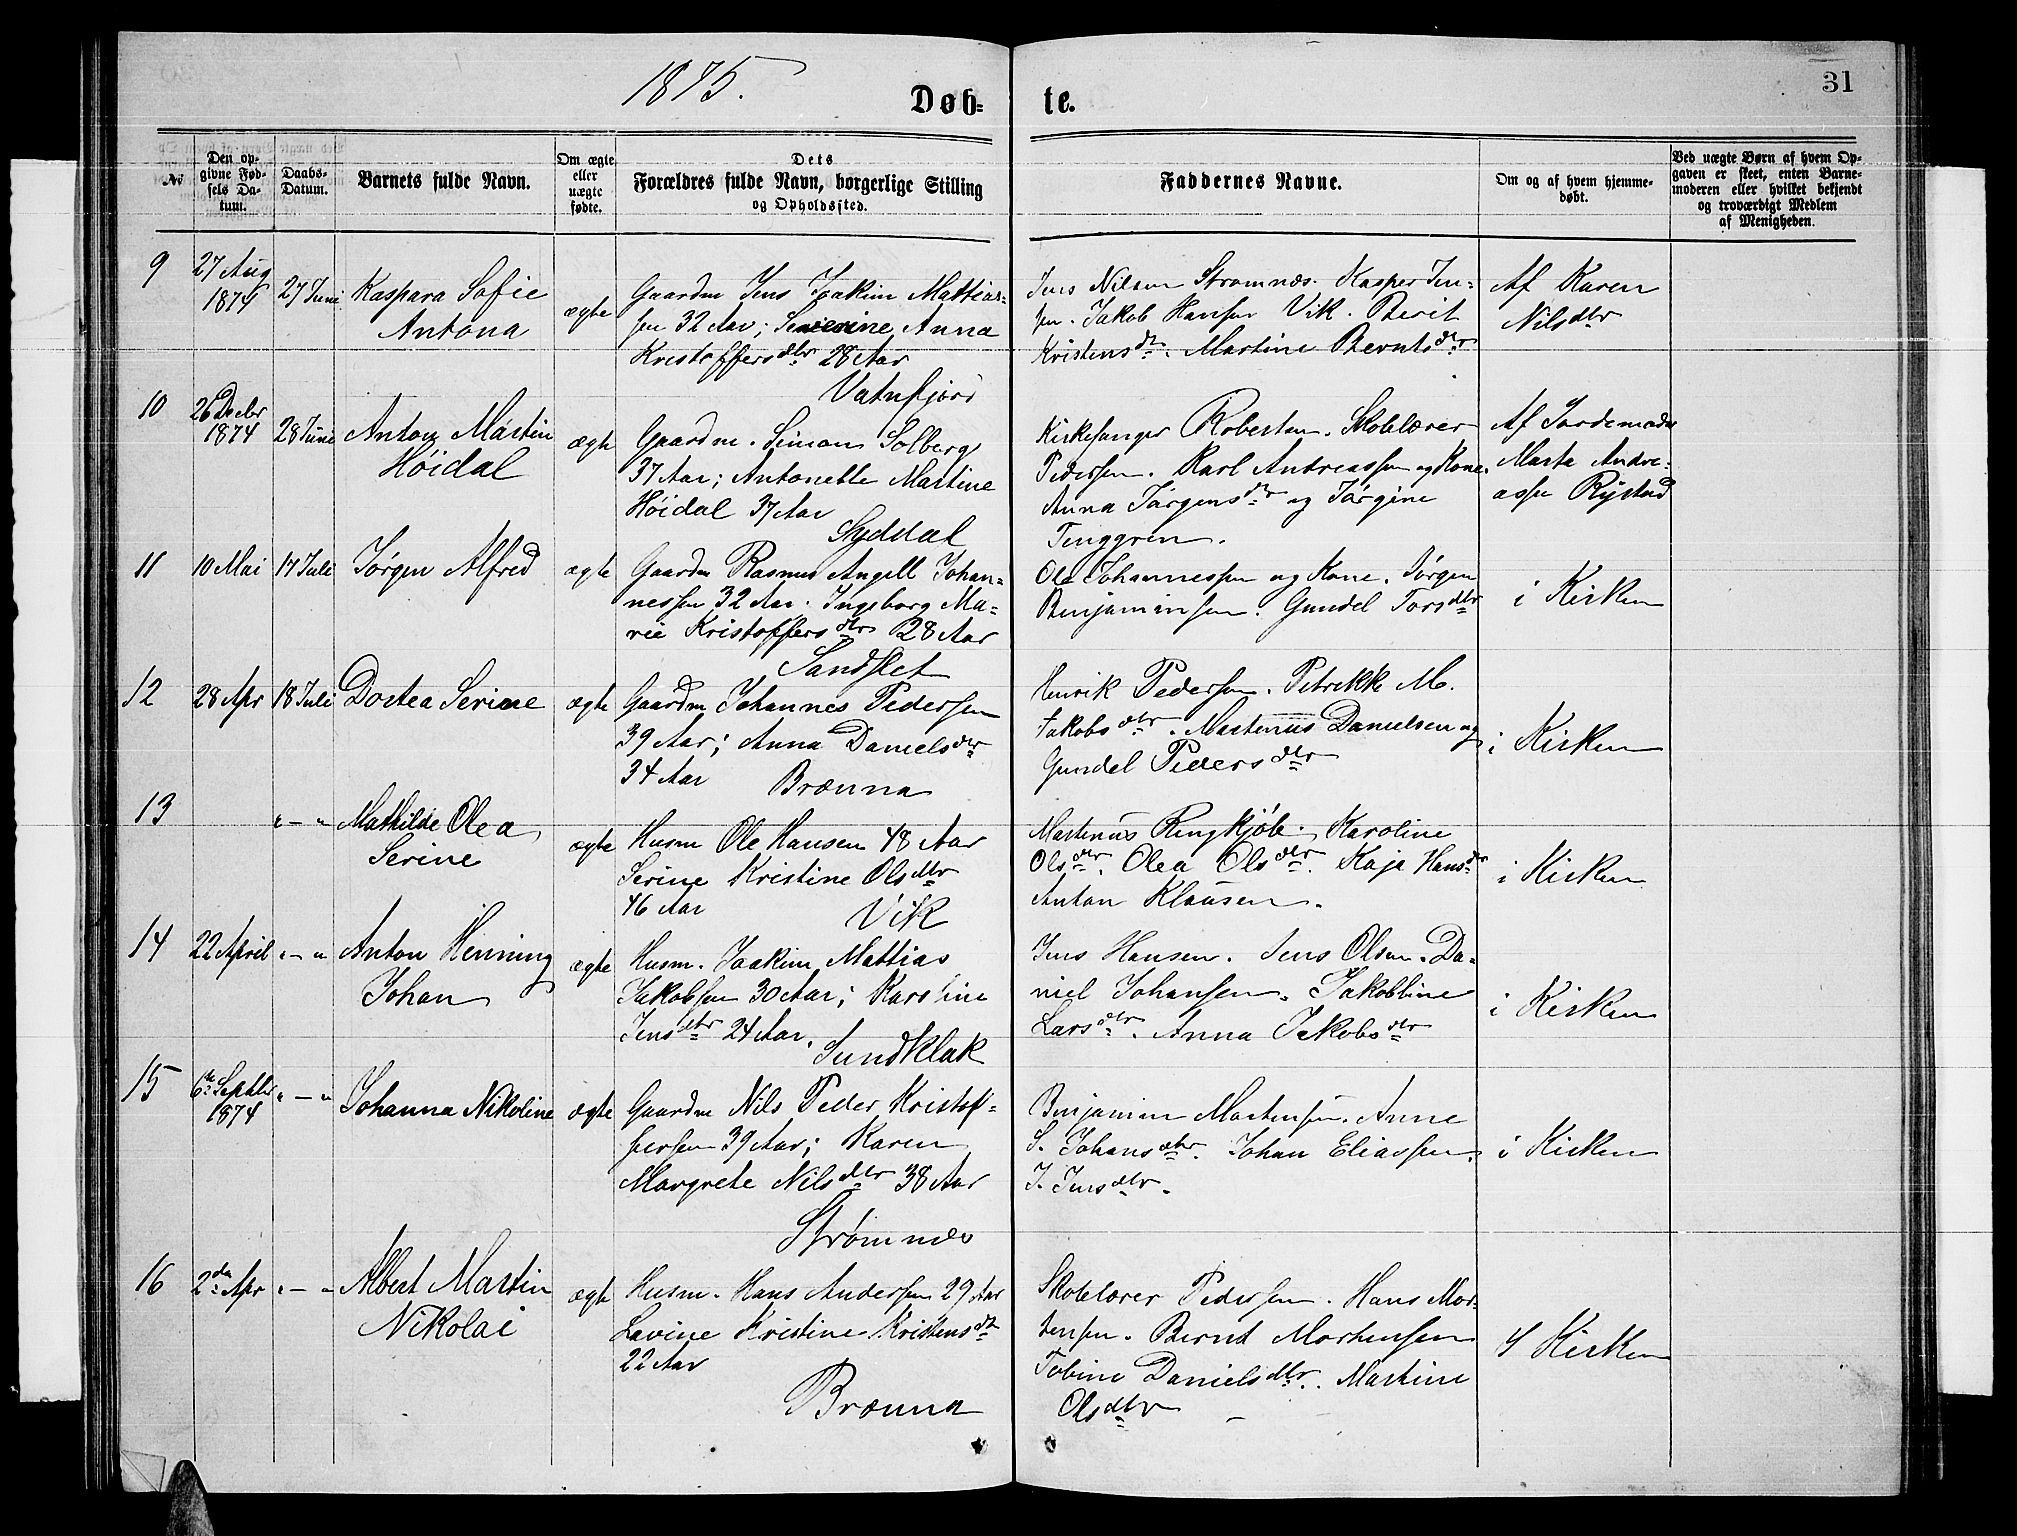 1875.
Døb-
te.
31
№
Den op-
givne Fød-
sels Da-
tum.
Daabs-
Datum.
Barnets fulde Navn.
Om ægte
eller
uægte
fødte.
Dets
Forældres fulde Navn, borgerlige Stilling
og Opholdssted.
Faddernes Navne.
Om og af hvem hjemme-
døbt.
Ved uægte Børn af hvem Op-
gaven er skeet, enten Barne-
moderen eller hvilket bekjendt
og troværdigt Medlem
af Menigheden.
9
27 Aug
1874
27 Juni
Kaspara Sofie
Antona
ægte
Gaardm Jens Joakim Mattias-
sen 32 Aar; Anna
Kristoffersdtr 28 Aar
Vatnfjord
Jens Nilsen Strømnæs. Kasper Jen-
sen. Jakob Hansen Vik. Berit
Kristensdtr. Martine Berntsdtr
Af Karen
Nilsdtr
10
26 Decbr
1874
28 Juni
Anton Martin
Høidal
ægte
Gaardm. Simon Solberg
37 Aar; Antonette Martine
Høidal 37 Aar
Syddal
Kirkesanger Robertsen. Skolelærer
Pedersen. Karl Andreassen og Kone.
Anna Jørgensdtr og Jørgine
Tenggren.
Af Jordemoder
Marta Andre-
assen Rystad
11
10 Mai
17 Juli
Jørgen Alfred
ægte
Gaardm Rasmus Angell Johan-
nessen 32 Aar. Ingeborg Ma-
rie Kristoffersdtr 28 Aar
Sandslet
Ole Johannessen og Kone. Jørgen
Benjaminsen. Gundel Torsdtr
i Kirken
12
28 Apr
18 Juli
Dortea Serine
ægte
Gaardm Johannes Pedersen
39 Aar; Anna Danielsdtr
34 Aar
Brænna
Henrik Pedersen. Petrikke M.
Jakobsdtr. Martinus Danielsen og
Gundel Pedersdtr
i Kirken
13
"—"
Mathilde Olea
Serine
ægte
Husm Ole Hansen 48 Aar
Serine Kristine Olsdtr
46 Aar
Vik
Martinus Ringkjøb. Karoline
Olsdtr. Olea Olsdtr. Kaja Hansdtr
Anton Klausen.
i Kirken
14
22 April
"—"
Anton Henning
Johan
ægte
Husm. Joakim Mattias
Jakobsen 30 Aar; Karoline
Jensdtr 24 Aar.
Sundklak
Jens Hansen. Jens Olsen. Da-
niel Johansen. Jakobbine
Larsdtr. Anna Jakobsdtr
i Kirken
15
6te Septbr
1874
"—"
Johanna Nikoline
ægte
Gaardm Nils Peder Kristof-
fersen 39 Aar; Karen
Margrete Nilsdtr 38 Aar
Strømnæs
Benjamin Mortensen. Anne
S. Johansdtr. Johan Eliassen.
J. Jensdtr.
i Kirken
16
2den Apr
"—"
Albert Martin
Nikolai
ægte
Husm. Hans Andersen 29 Aar
Lavine Kristine Kristensdtr
22 Aar
Brænna
Skolelærer Pedersen. Hans Mor-
tensen. Bernt Mortensen
Tobine Danielsdtr. Martine
Olsdtr —
i Kirken